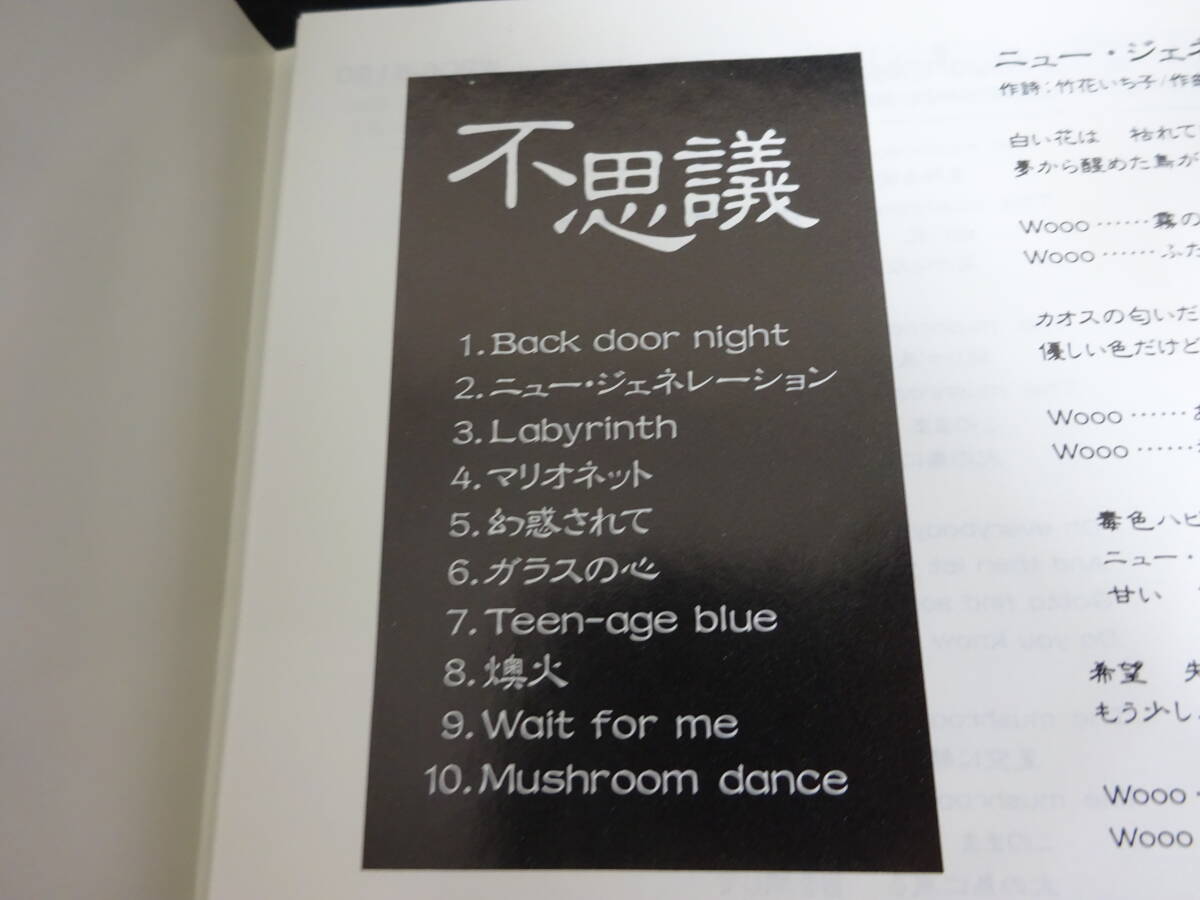 不思議
1. Back door night
2. ニュー・ジェネレーション
3. Labyrinth
4. マリオネット
5. 幻惑されて
6. ガラスの心
7. Teen-age blue
8. 燠火
9. Wait for me
10. Mushroom dance
ニュー・ジェネ
作詩:竹花いち子/作曲
白い花は 枯れて
夢から醒めた鳥が
Wooo……霧の
Wooo……ふた
カオスの匂いだ
優しい色だけど
Wooo……
Wooo……
毒色ハピ
ニュー・
甘い
希望
もう少し
Wooo
Wooo